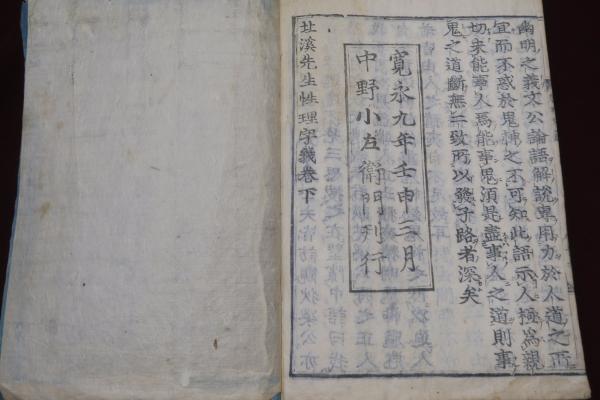 幽明之義文公論語解說專用力於人道之正
宜而不惑於鬼神之不可知此語示人極為親
切未能事人焉能事鬼須是盡事人之道則事
鬼之道斷無二致所以發子路者深矣
寛永九年壬申三月
中野小左衛門刊行
北溪先生性理字義卷下